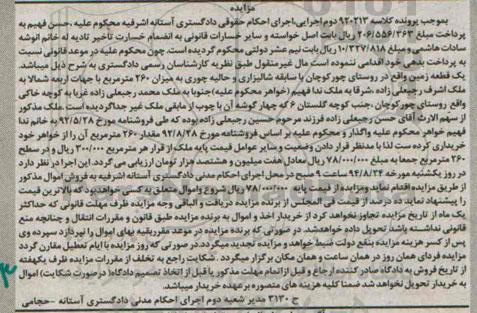 مزایده
بموجب پرونده کلاسه ۹۲۰۲۱۳ دوم اجرایی،اجرای احکام حقوقی دادگستری آستانه اشرفیه محکوم علیه ،حسن فهیم به
پرداخت مبلغ ۲۰۶/۵۵۶/۳۶۳ ریال بابت اصل خواسته و سایر خسارات قانونی به انضمام خسارت تاخیر تادیه له خانم انوشه
سادات هاشمی و مبلغ ۱۰/۳۲۷/۸۱۸ ریال بابت نیم عشر دولتی محکوم گردیده است. چون محکوم علیه در موعد قانونی نسبت
به پرداخت بدهی خود اقدامی ننموده است مال غیر منقول طبق نظریه کارشناس رسمی دادگستری به شرح ذیل میباشد.
یک قطعه زمین واقع در روستای چورکوچان با سابقه شالیزاری و حالیه چوری به میزان ۲۶۰ مترمربع با جهات اربعه شمالا به
ملک اشرف رجبعلی زاده ،شرقا به ملک ندا فهیم (خواهر محکوم علیه)جنوبا به ملک محمد رجبعلی زاده غربا به کوچه خاکی
واقع روستای چورکوچان ،جنب کوچه گلستان ۶ که چهار گوشه آن با چوب از مابقی ملک غیر جداگردیده است. ملک مذکور
از سهم الارث آقای حسن رجبعلی زاده فرزند مرحوم حسین رجبعلی زاده بوده که طی فروشنامه مورخ ۹۲/۵/۲۸ به خانم ندا
فهیم خواهر محکوم علیه واگذار و محکوم علیه بر اساس فروشنامه مورخ ۹۲/۸/۲۸ مقدار ۲۶۰ مترمربع آن را از خواهر خود
خریداری کرده ست لذا با مدنظر قرار دادن وضعیت و سایر عوامل قیمت پایه ملک از قرار هر مترمربع ۳۰۰/۰۰۰ ریال و در سطح
۲۶۰ مترمربع جمعا به مبلغ ۷۸/۰۰۰/۰۰۰ ریال معادل هفت میلیون و هشتصد هزار تومان ارزیابی می گردد. این اجرا در نظر دارد
در روز یکشنبه مورخه ۹۴/۸/۲۴ ساعت ۹ صبح در محل اجرای احکام مدنی دادگستری آستانه اشرفیه به فروش اموال مذکور
از طریق مزایده اقدام نماید ومزایده از قیمت پایه ۷۸/۰۰۰/۰۰۰ ریال شروع واموال متعلق به کسی خواهدبود که بالاترین قیمت
را پیشنهاد نماید ده درصد از قیمت فی المجلس از برنده مزایده دریافت و الباقی وجه مزایده ظرف مهلت قانونی که حداکثر
یک ماه از تاریخ مزایده تجاوز نخواهد کرد از خریدار اخذ و اموال به برنده مزایده طبق قانون و مقررات انتقال و چنانچه منع
قانونی نداشته باشد تحویل داده خواهدشد. در صورتی که برنده مزایده در موعد مقرربقیه بهای اموال را نپردازد سپرده وی
پس از کسر هزینه مزایده بنفع دولت ضبط خواهد و مزایده تجدید میگردد.در صورتی که روز مزایده با ایام تعطیل مقارن گردد
مزایده فردای همان روز در همان ساعت و همان مکان برگزار میگردد .شکایت راجع به تخلف از مقررات مزایده ظرف یکهفته
از تاریخ فروش به دادگاه صادر کننده ارجاع و قبل از اتمام مهلت مذکور یا قبل از اتخاذ تصمیم دادگاه( در صورت شکایت) اموال
به خریدار تحویل نخواهد شد ضمنا کلیه هزینه های متصوره بر عهده خریدار میباشد.
ح ۳۱۳۰ مدیر شعبه دوم اجرای احکام مدنی دادگستری آستانه -حجامی